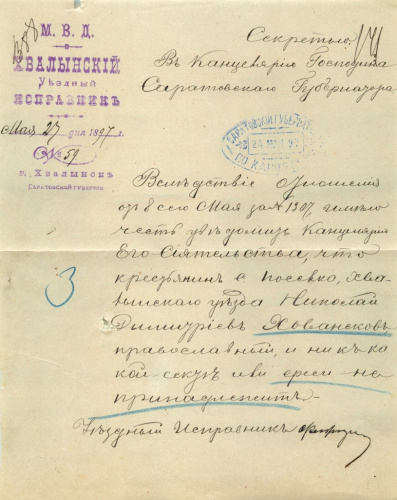 М. В. Д.
ХВАЛЫНСКІЙ
УѢЗДНЫЙ
ИСПРАВНИКЪ
Мая 27 дня 1897 г.
№ 59
г. Хвалынскъ
САРАТОВСКОЙ ГУБЕРНІИ
Секретно.
Въ Канцелярію Господина
Саратовского Губернатора
САРАТОВСКІЙ ГУБЕРН
ПО КАНЦЕЛ
Вслѣдствіе отношенія
отъ 8 сего Мая за № 1307 имѣю
честь увѣдомить Канцелярію
Его Сіятельства, что
крестьянин с. Посевко, Хва-
лынскаго уѣзда Николай
Дмитріевъ Ховансковъ
православный, и ни къ ко-
кой сектѣ или ереси не
принадлежитъ.
Уѣздный Исправникъ
3